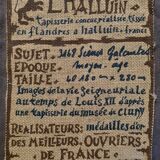 L'HALLUIN
tapisserie concue réalisée tissée
en flandres a halluin. france
SUJET.
EPOQUE. moyen-age
TAILLE.
Images de la vie Seigneuriale
au temps de Louis XII d'après
une tapisserie du musée de CLUNY
REALISATEURS: médailles d'or
DES MEILLEURS OUVRIERS
DE FRANCE.